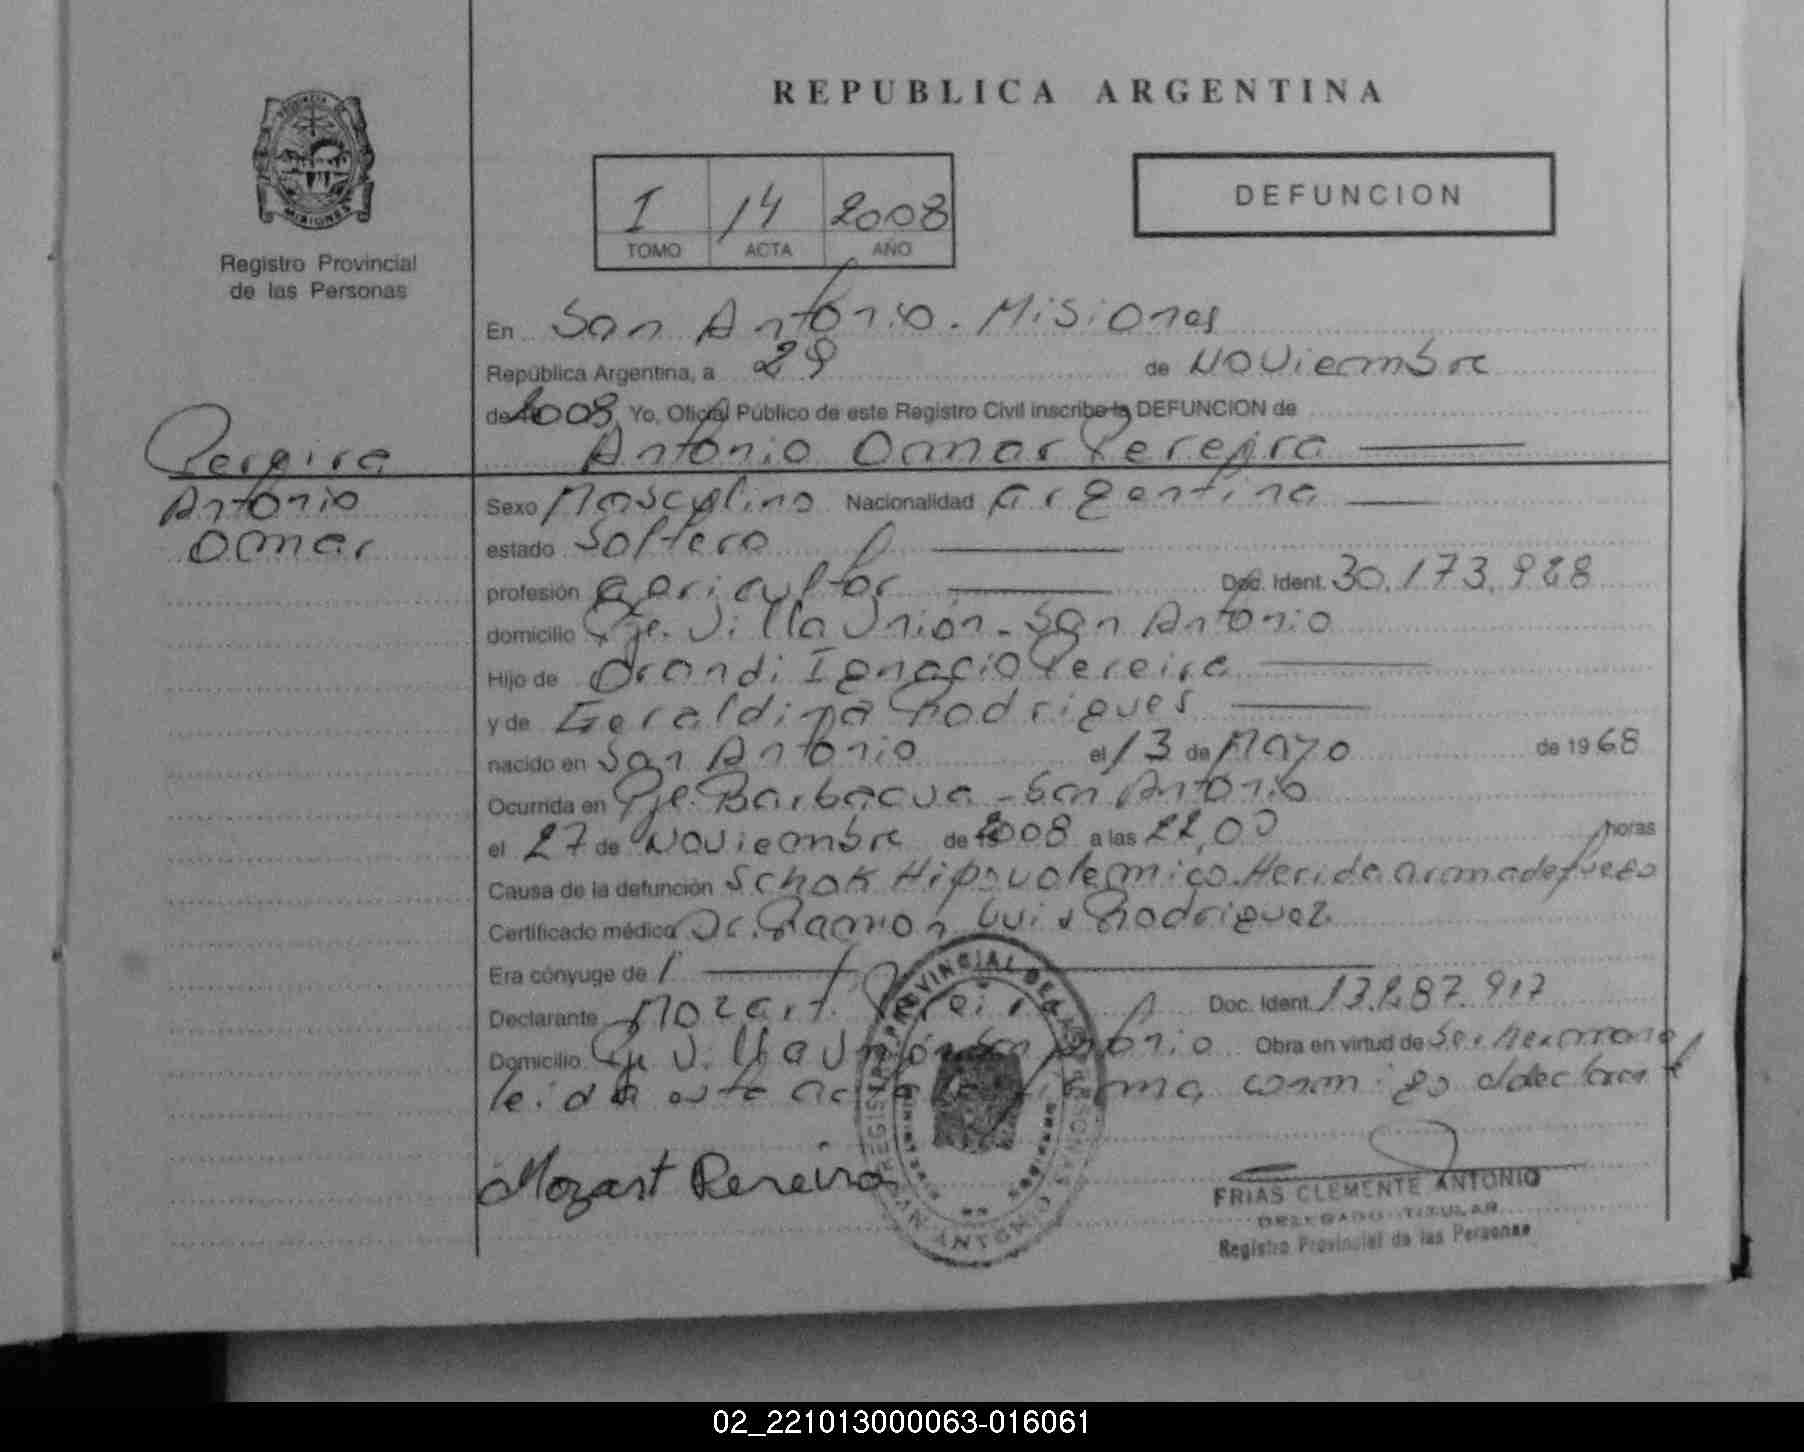 REPUBLICA ARGENTINA
PROVINCIA DE
MISIONES
Registro Provincial
de las Personas
I 14 2008
TOMO ACTA AÑO
DEFUNCION
En San Antonio. Misiones
República Argentina, a 29 de Noviembre
de 2008 Yo, Oficial Público de este Registro Civil inscribo la DEFUNCION de
Antonio Omar Pereira
Pereira
Antonio
Omar
Sexo Masculino Nacionalidad argentina
estado Soltero
profesión agricultor Doc. Ident. 30.173.928
domicilio Pje. Villa Unión - San Antonio
Hijo de Orandi Ignacio Pereira
y de Geraldina Rodrigues
nacido en San Antonio el 13 de Mayo de 1968
Ocurrida en Pje. Barbacua - San Antonio
el 27 de Noviembre de 2008 a las 22,00 horas
Causa de la defunción Schok Hipovolemico. Herida arma de fuego
Certificado médico Dr. Ramon Luis Rodriguez
Era cónyuge de /
Declarante Mozart Pereira Doc. Ident. 13.287.917
Domicilio Pje Villa Unión San Antonio Obra en virtud de Ser hermano
leida este acta la firma conmigo el declarante
Mozart Pereira
REGISTRO PROVINCIAL DE LAS PERSONAS
SAN ANTONIO
FRIAS CLEMENTE ANTONIO
DELEGADO TITULAR
Registro Provincial de las Personas
02_221013000063-016061